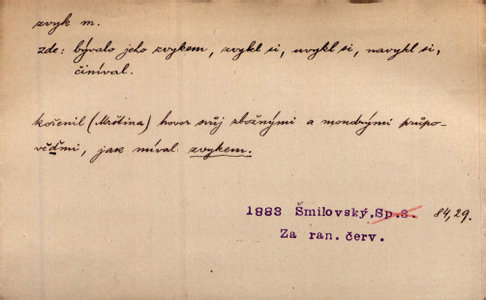 zvyk m.
zde: bývalo jeho zvykem, zvykl si, uvykl si, navykl si,
činíval.
kořenil (Mrština) hovor svůj zbožnými a moudrými průpo-
věďmi, jak míval zvykem.
1883 Šmilovský.Sp.8. 84,29.
Za ran. červ.